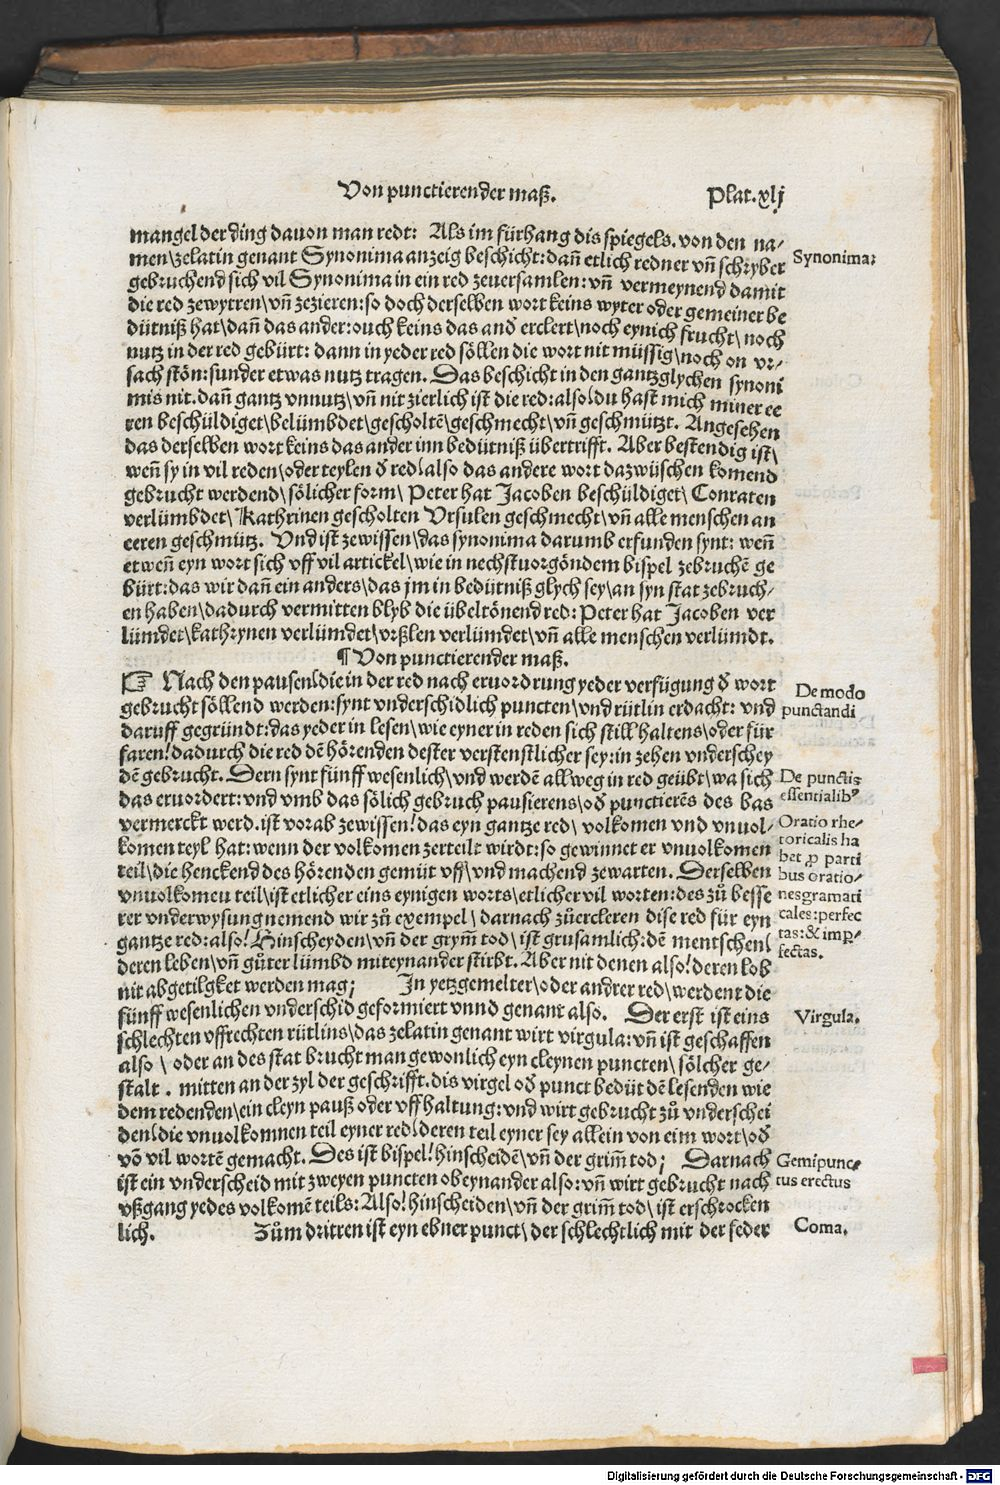 Von punctierender maß.
Plat.xlj
mangel der ding dauon man redt: Als im fürhang dis spiegels. von den na⸗
men\zelatin genant Synonima anzeig beschicht: dañ etlich redner vñ schryber
Synonima:
gebruchend sich vil Synonima in ein red zeuersamlen: vñ vermeynend damit
die red zewytren\vñ zezieren: so doch derselben wort keins wyter oder gemeiner be
dütniß hat\dañ das ander: ouch keins das and̾ erclert\noch eynich frucht\noch
nutz in der red gebürt: dann in yeder red söllen die wort nit müssig\noch on vr⸗
sach stön: sunder etwas nutz tragen. Das beschicht in den gantzglychen synoni
mis nit. dañ gantz vnnutz\vñ nit zierlich ist die red: also⟨du hast mich miner ee
ren beschüldiget\belümbdet\gescholtē\geschmecht\vñ geschmützt. Angesehen
das derselben wort keins das ander inn bedütniß übertrifft. Aber bestendig ist\
weñ sy in vil reden\oder teylen d̾ red⟨also das andere wort dazwüschen komend
gebrucht werdend\sölicher form\ Peter hat Jacoben beschüldiget\Conraten
verlümbdet\Kathrinen gescholten Vrsulen geschmecht\vñ alle menschen an
eeren geschmütz. Vnd ist zewissen\das synonima darumb erfunden synt: weñ
etweñ eyn wort sich vff vil artickel\wie in nechstuorgöndem bispel zebruchē ge
bürt: das wir dañ ein anders\das jm in bedütniß glych sey\an syn stat zebruch⸗
en haben\dadurch vermitten blyb die übeltönend red: Peter hat Jacoben ver
lümdet\kathrynen verlümdet\vrßlen verlümdet\vñ alle menschen verlümdt.
¶ Von punctierender maß.
☞ Nach den pausen⟨die in der red nach eruordrung yeder verfügung d̾ wort
De modo
gebrucht söllend werden: synt vnderschidlich puncten\vnd rütlin erdacht: vnd
punctandi
daruff gegründt: das yeder in lesen\wie eyner in reden sich still haltens\oder für
faren! dadurch die red dē hörenden dester verstenstlicher sey: in zehen vnderschey
dē gebrucht. Dern synt fünff wesenlich\vnd werdē allweg in red geübt\wa sich
De punctis
das eruordert: vnd vmb das sölich gebruch pausierens\od̾ punctierēs des bas
essentialibꝰ
vermerckt werd. ist vorab zewissen! das eyn gantze red\ volkomen vnd vnuol⸗
Oratio rhe⸗
komen teyl hat: wenn der volkomen zerteilt wirdt: so gewinnet er vnuolkomen
toricalis ha
teil\die henckend des hörenden gemüt vff\vnd machend zewarten. Derselben
bet ꝓ parti
bus oratio⸗
vnuolkomeu teil\ist etlicher eins eynigen worts\etlicher vil worten: des zů besse
nesgramati
rer vnderwysung nemend wir zů exempel\ darnach zůercleren dise red für eyn
cales: perfec
gantze red: also! Hinscheyden\vñ der grym̃ tod\ ist grusamlich: dē mentschen⟨
tas: & imꝑ⸗
deren leben\vñ gůter lümbd miteynander stirbt. Aber nit denen also! deren lob
fectas.
nit abgetilgket werden mag; In yetzgemelter\oder andrer red\werdent die
fünff wesenlichen vnderschid geformiert vnnd genant also. Der erst ist eins
Virgula.
schlechten vffrechten rütlins\das zelatin genant wirt virgula: vñ ist geschaffen
also \ oder an des stat brucht man gewonlich eyn cleynen puncten\ sölcher ge⸗
stalt . mitten an der zyl der geschrifft. dis virgel od̾ punct bedüt dē lesenden wie
dem redenden\ein cleyn pauß oder vffhaltung: vnd wirt gebrucht zů vnderschei
den⟨die vnuolkomnen teil eyner red⟨deren teil eyner sey allein von eim wort\od̾
vō vil wortē gemacht. Des ist bispel! hinscheidē\vñ der grim̃ tod; Darnach
Gemipunc⸗
ist ein vnderscheid mit zweyen puncten obeynander also: vñ wirt gebrucht nach
tus erectus
vßgang yedes volkomē teils: Also! hinscheiden\vñ der grim̃ tod\ ist erschrocken
lich. Zům dritten ist eyn ebner punct\ der schlechtlich mit der feder
Coma.
Digitalisierung gefördert durch die Deutsche Forschungsgemeinschaft - DFG